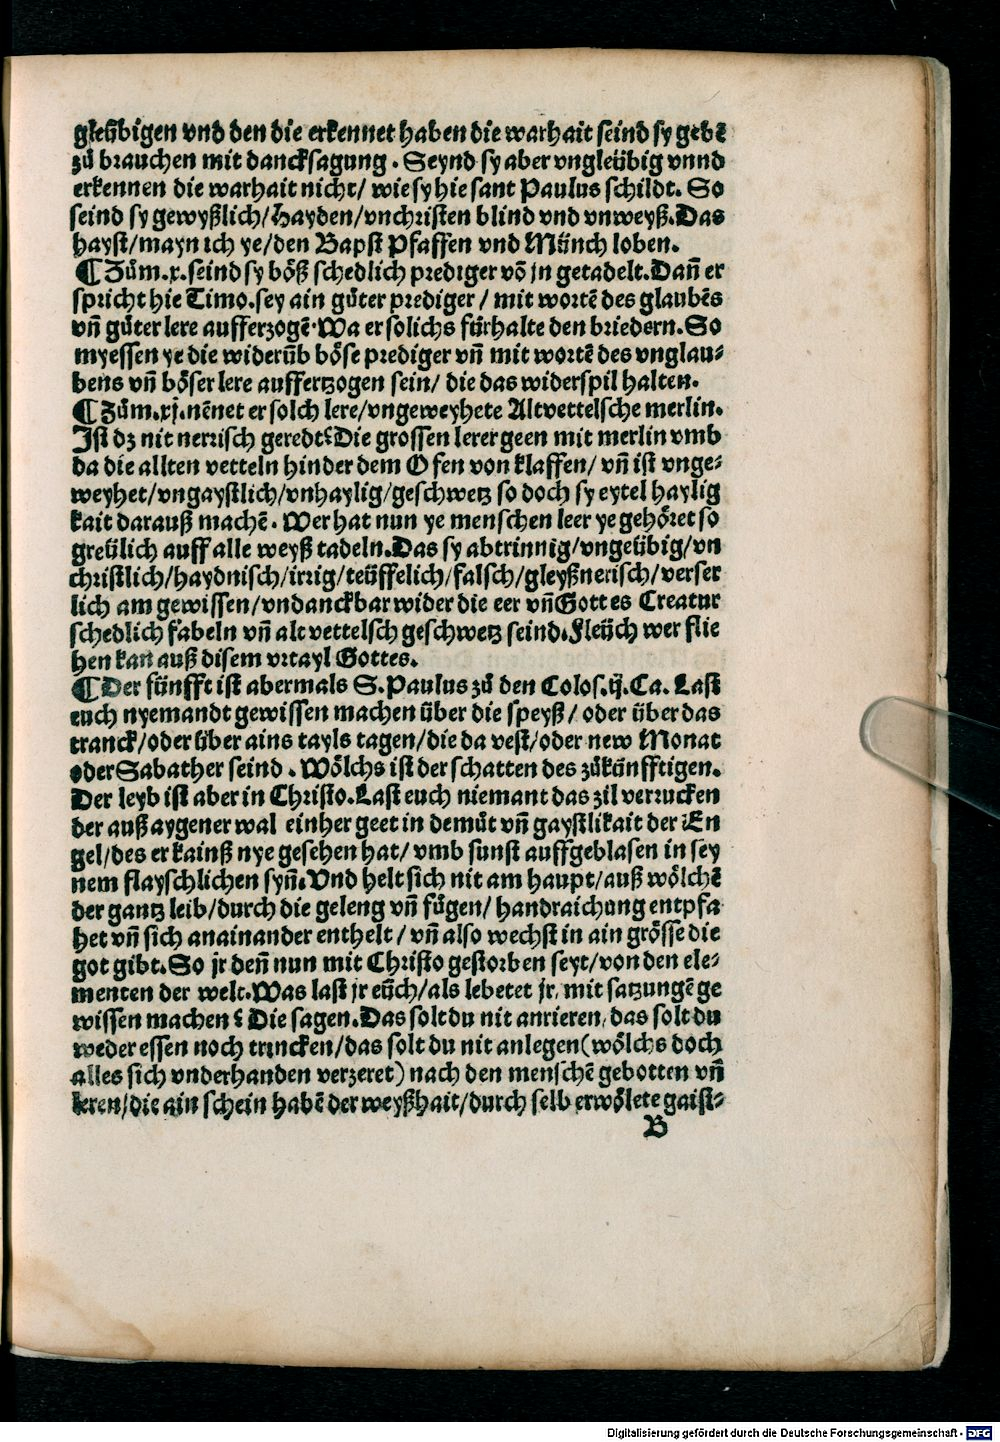 gleübigen vnd den die erkennet haben die warhait seind sy gebē
zů brauchen mit dancksagung . Seynd sy aber vngleübig vnnd
erkennen die warhait nicht/ wie sy hie sant Paulus schildt. So
seind sy gewyßlich/ Hayden/ vnchristen blind vnd vnweyß. Das
hayst/ mayn ich ye/ den Bapst Pfaffen vnd Münch loben.
¶ Zům .x. seind sy böß schedlich prediger võ jn getadelt. Dañ er
spricht hie Timo. sey ain gůter prediger / mit wortē des glaubēs
vñ gůter lere aufferzogē. Wa er solichs fürhalte den briedern. So
myessen ye die widerüb böse prediger vñ mit wortē des vnglau⸗
bens vñ böser lere auffertzogen sein/ die das widerspil halten.
¶ Zům .xj. nēnet er solch lere/ vngeweyhete Altvettelsche merlin.
Ist dz nit nerrisch geredt? Die grossen lerer geen mit merlin vmb
da die allten vetteln hinder dem Ofen von klaffen/ vñ ist vnge⸗
weyhet/ vngaystlich/ vnhaylig/ geschwetz so doch sy eytel haylig
kait darauß machē . Wer hat nun ye menschen leer ye gehöret so
greülich auff alle weyß tadeln. Das sy abtrinnig/ vngeübig/ vn
christlich/ haydnisch/ irrig/ teüffelich/ falsch/ gleyßnerisch/ verser
lich am gewissen/ vndanckbar wider die eer vñ Gottes Creatur
schedlich fabeln vñ alt vettelsch geschwetz seind. Fleüch wer flie
hen kan auß disem vrtayl Gottes.
¶ Der fünfft ist abermals S. Paulus zů den Colos. ij. Ca. Last
euch nyemandt gewissen machen über die speyß/ oder über das
tranck/ oder über ains tayls tagen/ die da vest/ oder new Monat
oder Sabather seind . Wölchs ist der schatten des zůkünfftigen.
Der leyb ist aber in Christo. Last euch niemant das zil verrucken
der auß aygener wal einher geet in demůt vñ gaystlikait der En
gel/ des er kainß nye gesehen hat/ vmb sunst auffgeblasen in sey
nem flayschlichen syñ. Vnd helt sich nit am haupt/ auß wölchē
der gantz leib/ durch die geleng vñ fůgen/ handraichung entpfa
het vñ sich anainander enthelt / vñ also wechst in ain grösse die
got gibt. So jr deñ nun mit Christo gestorben seyt/ von den ele⸗
menten der welt. Was last jr eüch/ als lebetet jr, mit satzungē ge
wissen machen? Die sagen. Das solt du nit anrieren, das solt du
weder essen noch trincken/ das solt du nit anlegen (wölchs doch
alles sich vnderhanden verzeret) nach den menschē gebotten vñ
leren/ die ain schein habē der weyßhait/ durch selb erwölete gaist⸗
B
Digitalisierung gefördert durch die Deutsche Forschungsgemeinschaft - DFG